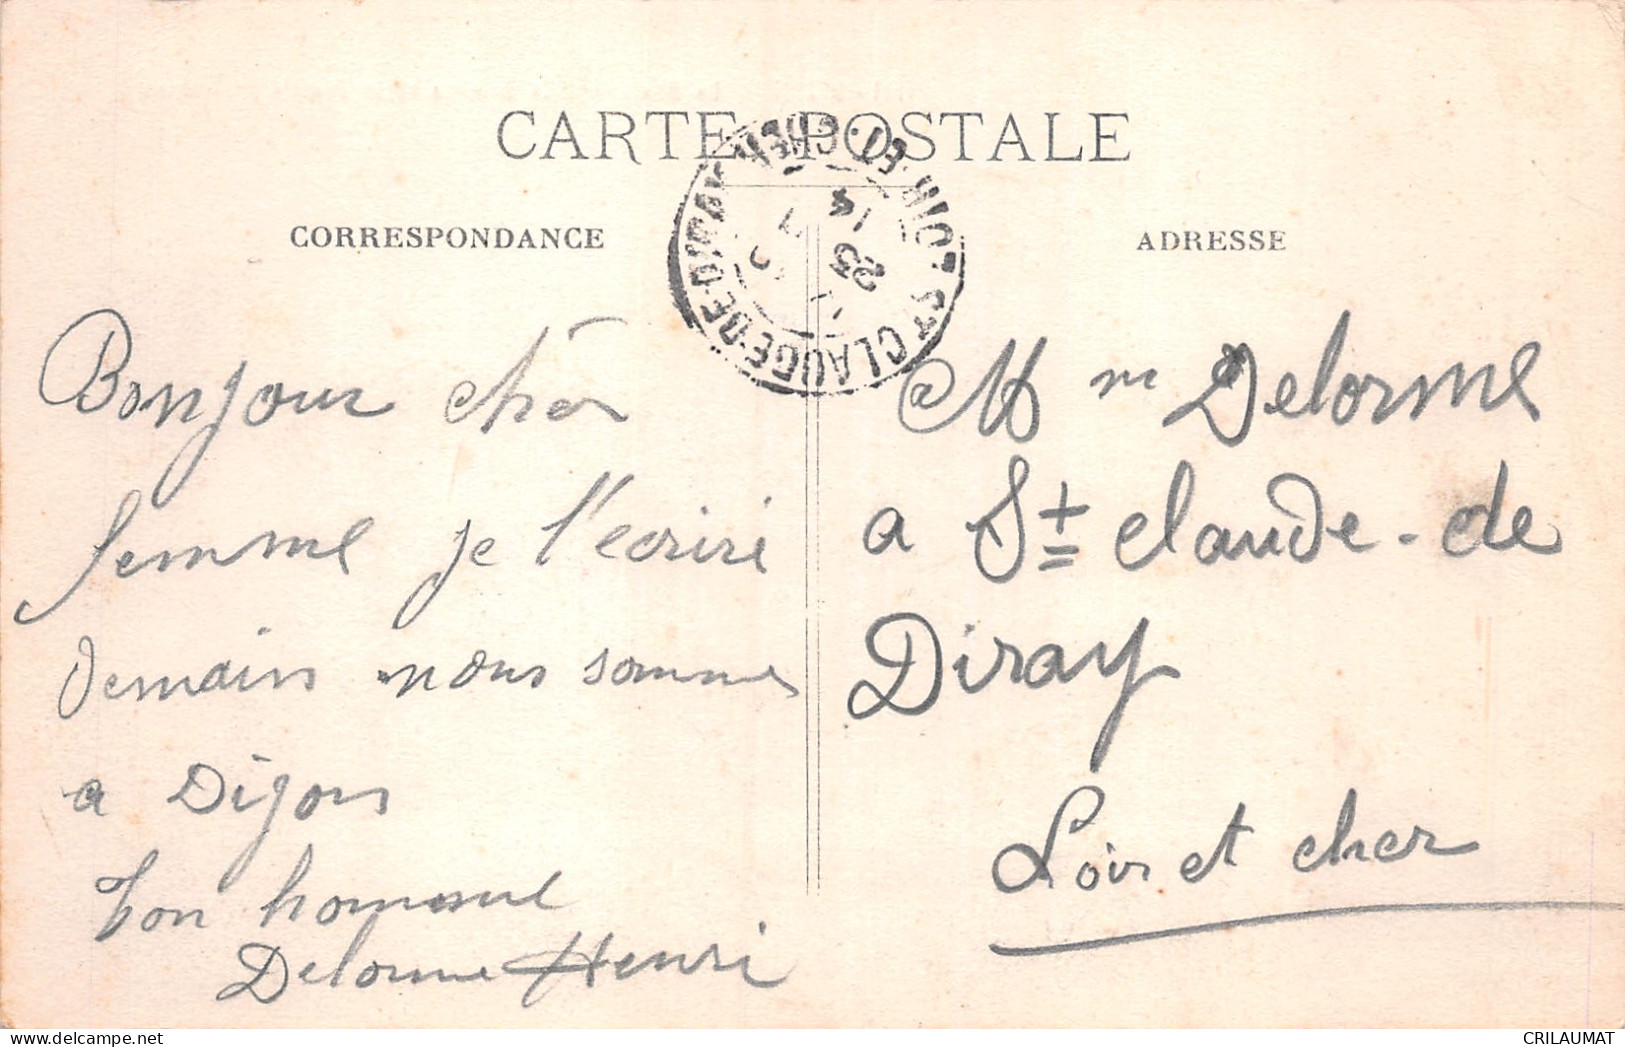 CARTE POSTALE
CORRESPONDANCE
ADRESSE
ST CLAUDE-DE-DIRAY LOIR-ET-CHER
14
25
Bonjour cher
femme je l'ecrire
demain nous somme
a Dijon
ton homme
Delorme Henri
Mme Delorme
a St claude-de
Diray
Loir et cher
CRILAUMAT